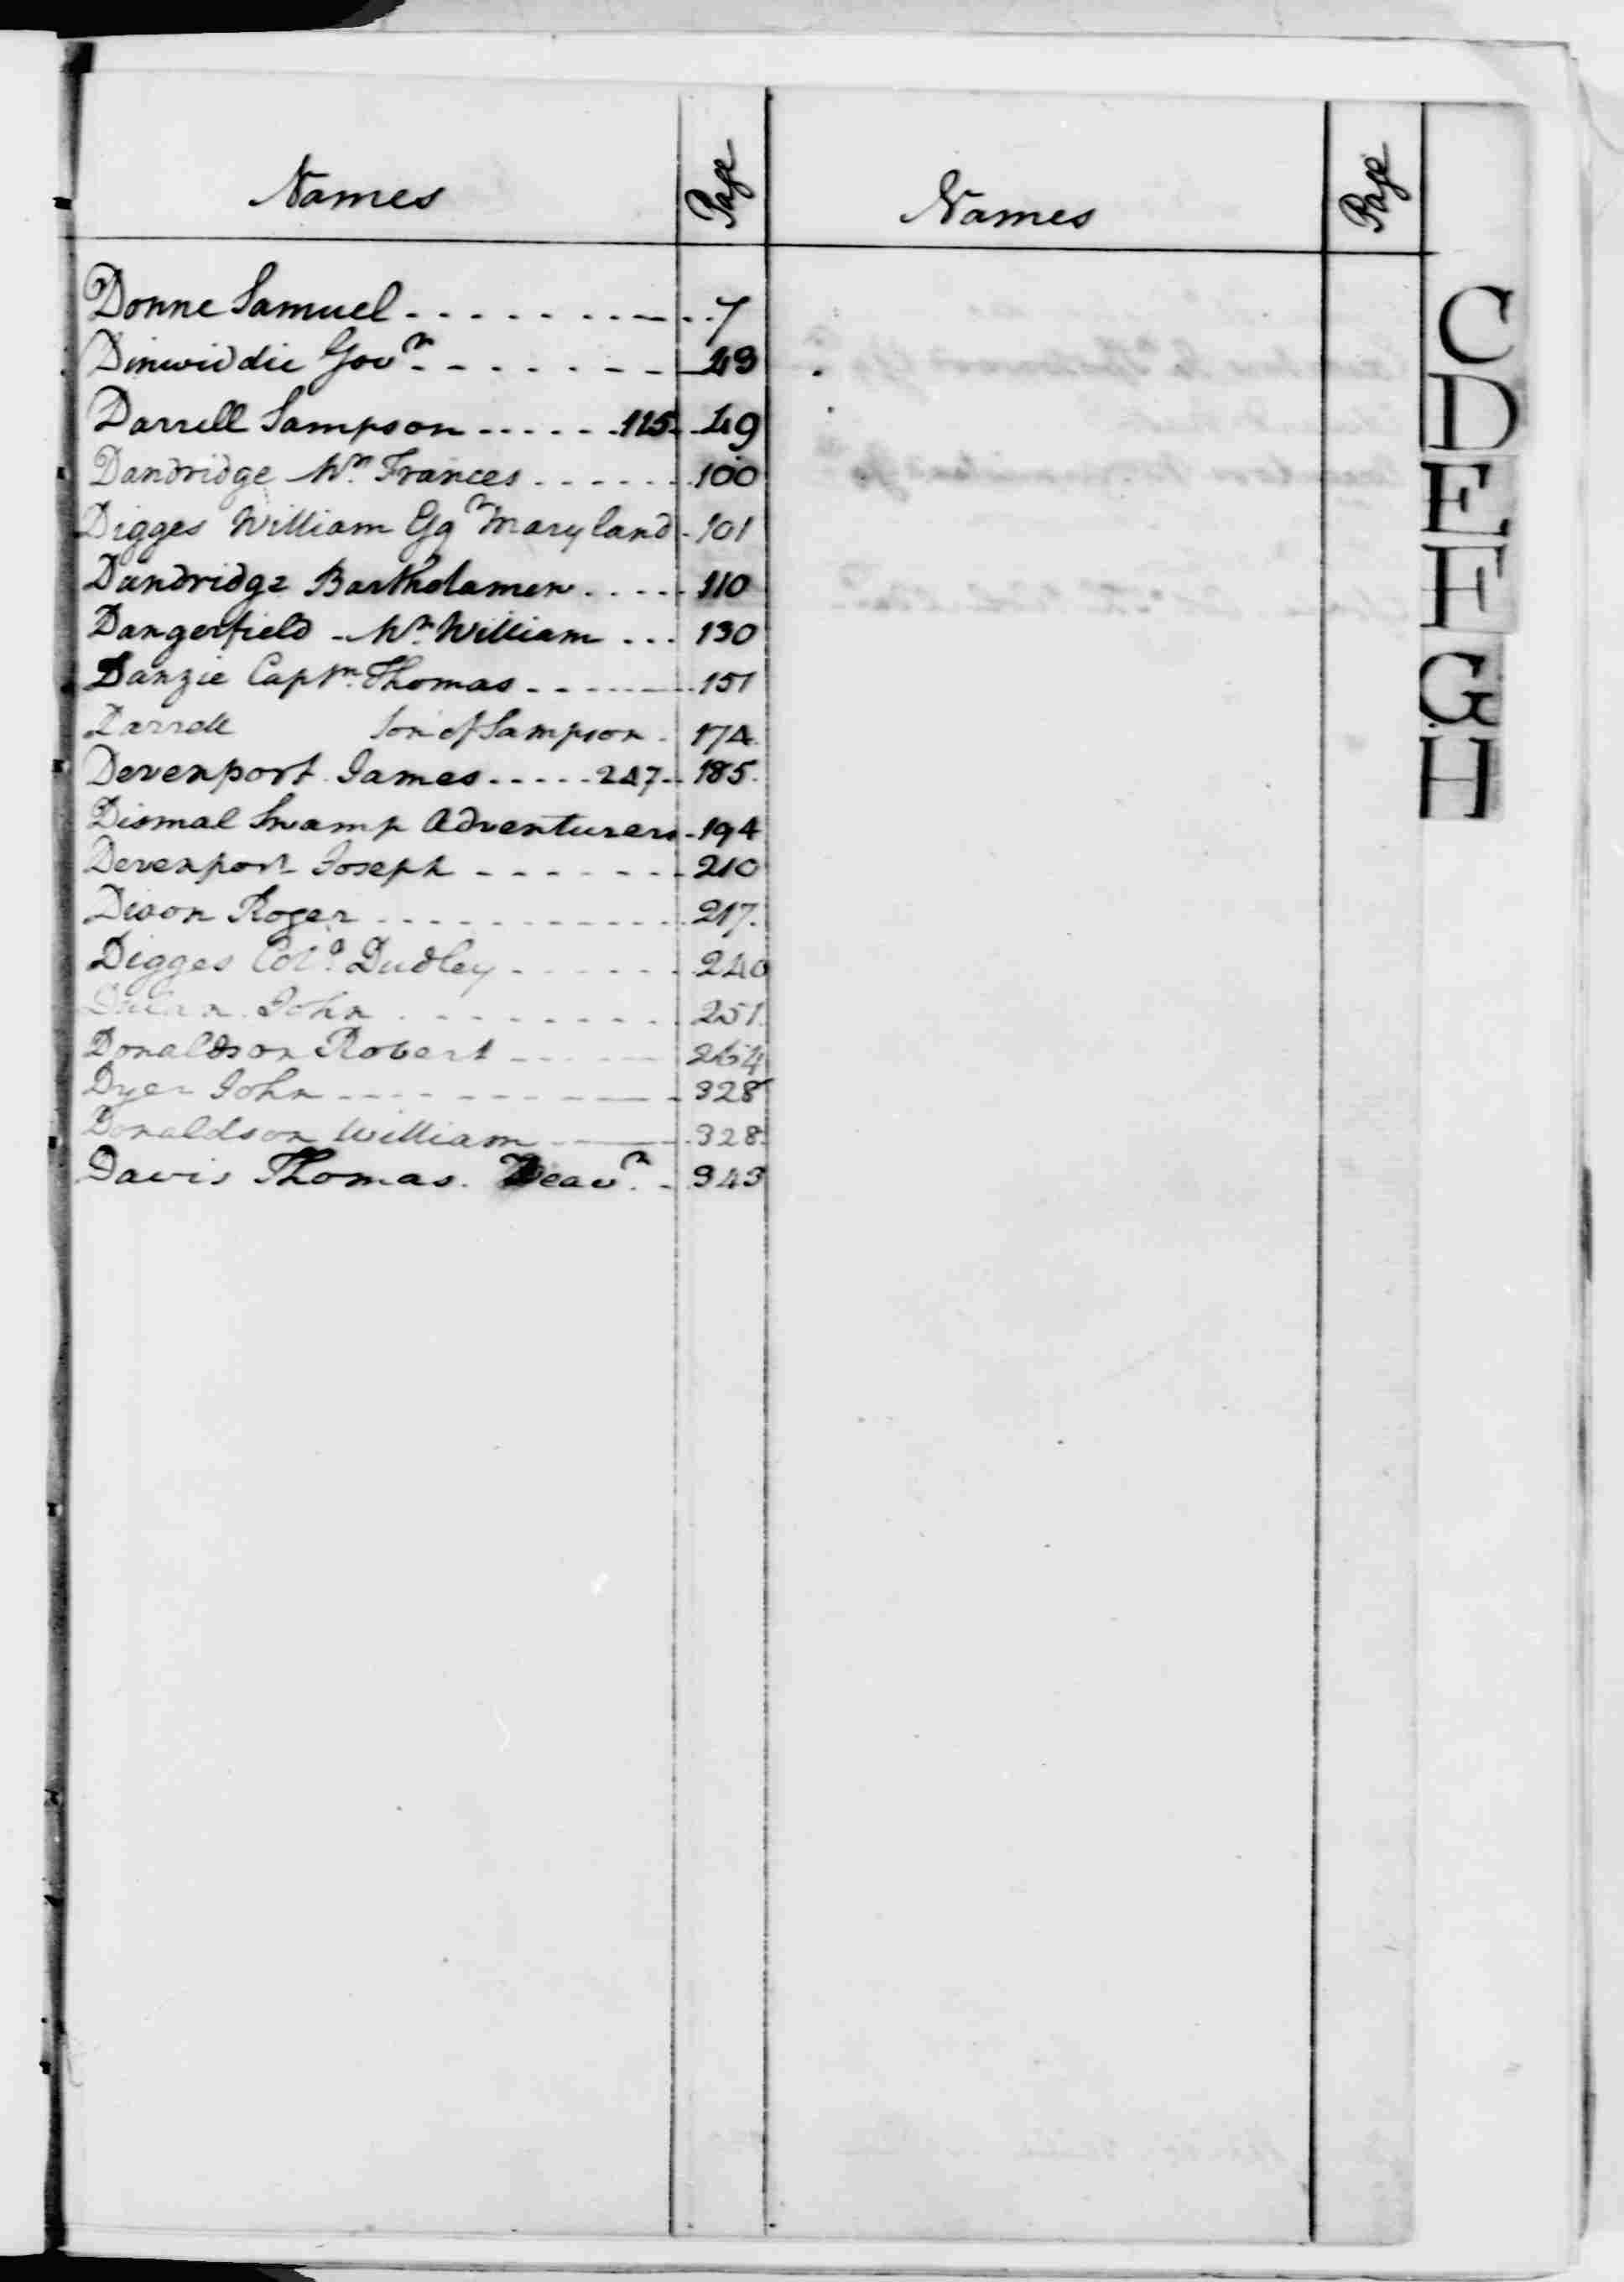 Names Page Names Page
Donne Samuel - - - - - - - - - 7
Dinwiddie Govr. - - - - - - - 43
Darrell Sampson - - - - - - 115 - 49
Dandridge Mrs. Frances - - - - - - 100
Digges William Esqr Maryland - 101
Dandridge Bartholamew - - - - - 110
Dangerfield - Mr. William - - - 130
Danzie Captn. Thomas - - - - - - 151
Darrell son of Sampson - 174.
Devenport James - - - - - 247 - - 185.
Dismal Swamp Adventurers - 194
Devenport Joseph - - - - - - - 210
Dixon Roger - - - - - - - - - - - 217.
Digges Colo. Dudley - - - - - - 240
John - - - - - - - - - 251.
Donaldson Robert - - - - - 264
Dyer John - - - - - - - - - 328
Donaldson William - - - - 328.
Davis Thomas. Weavr. - 343
C
D
E
F
G
H